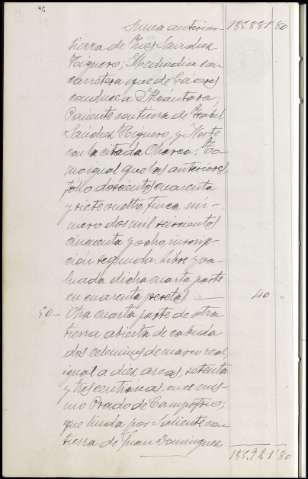 Suma anterior 185881'80
tierra de Inés Sandez
Vaquero; Mediodia ca-
rretera que de Cáceres
conduce a Alcántara;
Poniente con tierra de
Sandez Vaquero, y Norte
con la citada Charca. To-
mo igual que los anteriores,
folio doscientos cuarenta
y siete vuelto, finca nú-
mero dos mil seiscientos
cuarenta y ocho, inscrip-
ción segunda. Libre y va-
luada dicha cuarta parte
en cuarenta pesetas. — 40
50 — Otra cuarta parte de otra
tierra abierta de cabida
dos celemines de marco real,
igual a diez areas, setenta
y tres centiáreas, en el mis-
mo Prado de Campofrio;
que linda por Saliente con
tierra de Juan Dominguez
185921'80